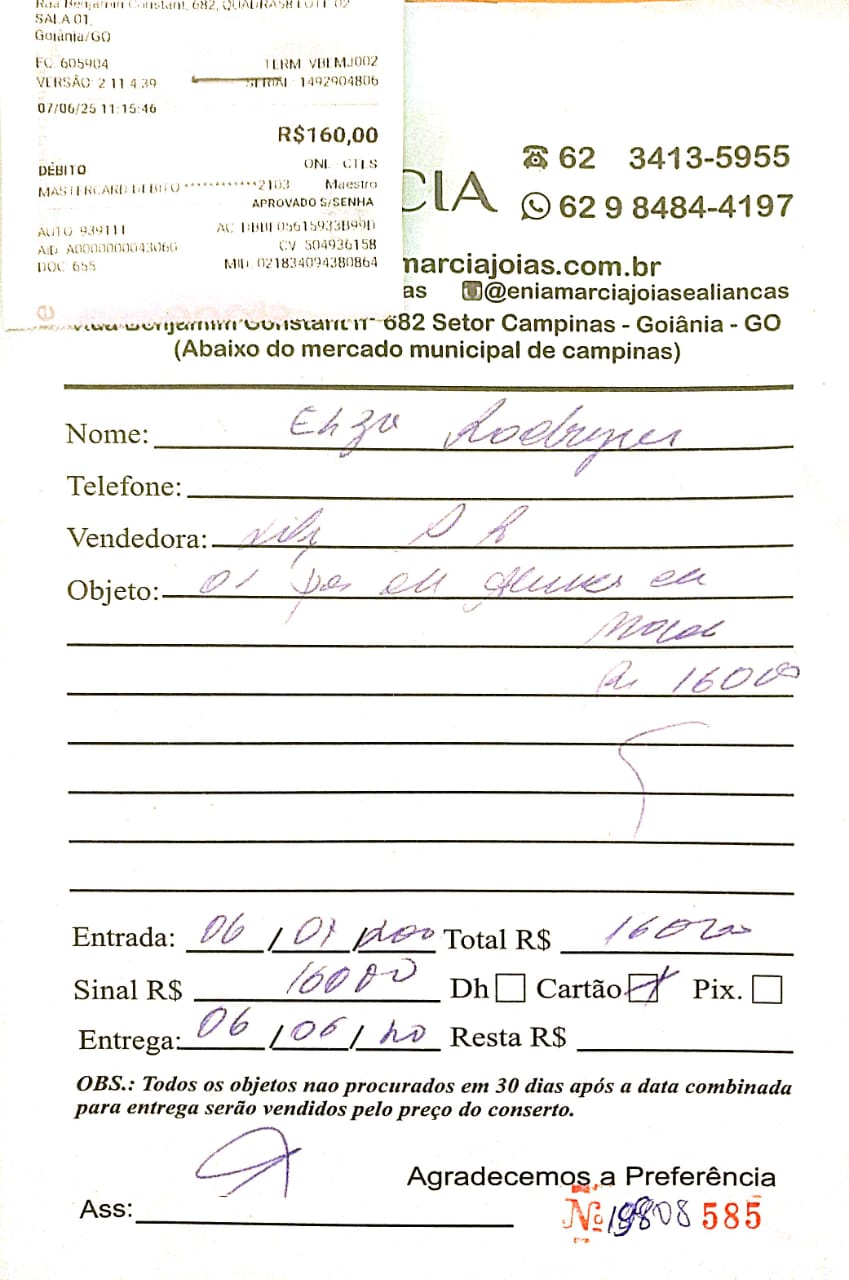 Rua Benjamin Constant, 682, QUADRA58 LOTE 02
SALA 01,
Goiânia/GO
EC 605904 TERM VBEMJ002
VERSÃO 2 11 4 39 SERIAL 1492904806
07/06/25 11:15:46
R$160,00
DÉBITO ONL CTLS
MASTERCARD DEBITO ************2103 Maestro
APROVADO S/SENHA
AUTO 939111
AID A0000000043060 CV 504936158
DOC 655 MID 021834094380864
CIA
62 3413-5955
62 9 8484-4197
marciajoias.com.br
as @eniamarciajoiasealiancas
Benjamim Constant n° 682 Setor Campinas - Goiânia - GO
(Abaixo do mercado municipal de campinas)
Nome: Rodrigues
Telefone:
Vendedora:
Objeto: 01 par de
16000
Entrada: 06 / / Total R$ 16000
Sinal R$ 16000 Dh Cartão Pix.
Entrega: 06 / 06 / Resta R$
OBS.: Todos os objetos nao procurados em 30 dias após a data combinada
para entrega serão vendidos pelo preço do conserto.
Agradecemos a Preferência
Ass: Nº 585